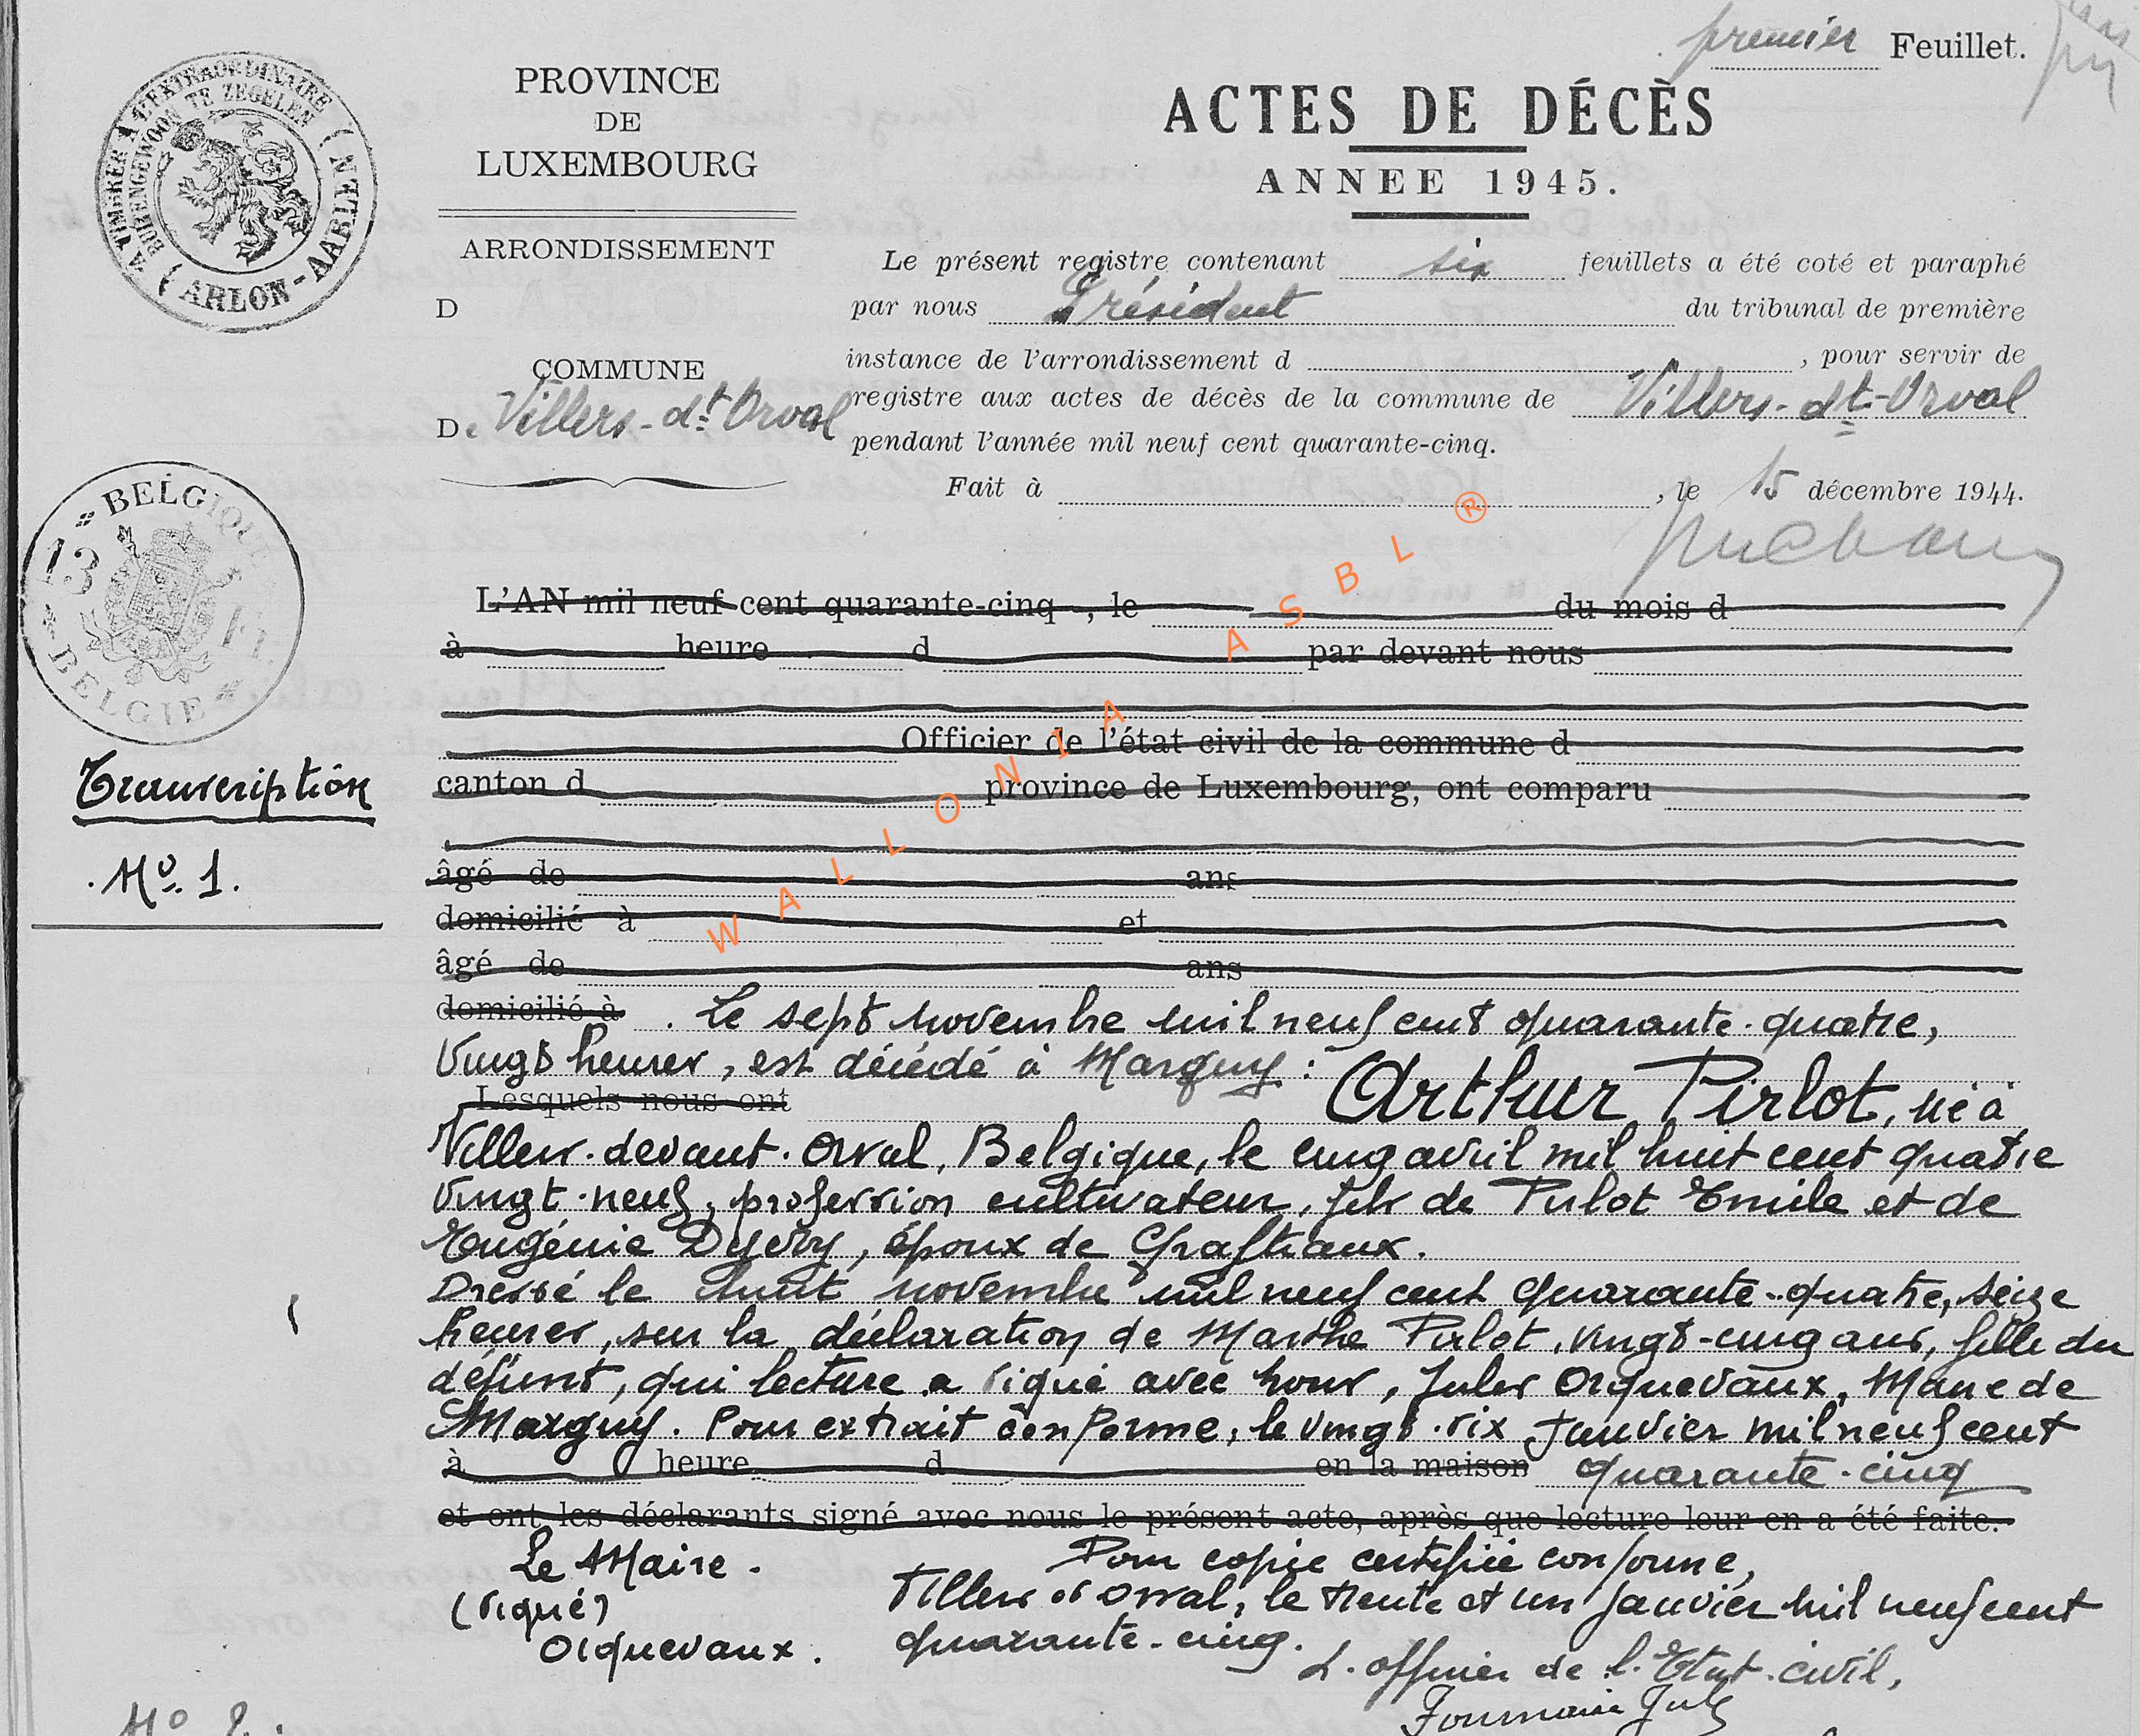 premier Feuillet.
A TIMBRER A L'EXTRAORDINAIRE
BUITENGEWOON TE ZEGELEN
ARLON-AARLEN
PROVINCE
DE
LUXEMBOURG
ARRONDISSEMENT
D
COMMUNE
D. Villers-dt Orval
ACTES DE DÉCÈS
ANNEE 1945.
Le présent registre contenant six feuillets a été coté et paraphé
par nous Président du tribunal de première
instance de l'arrondissement d , pour servir de
registre aux actes de décès de la commune de Villers-dt-Orval
pendant l'année mil neuf cent quarante-cinq.
Fait à , le 15 décembre 1944.
BELGIQUE
13 Fr.
BELGIE
L'AN mil neuf cent quarante-cinq , le du mois d
à heure d par devant nous
Officier de l'état civil de la commune d
canton d province de Luxembourg, ont comparu
âgé de ans
domicilié à et
âgé de ans
Transcription
No. 1.
WALLONIA ASBL ®
domicilié à . Le sept novembre mil neuf cent quarante-quatre,
vingt heures, est décédé à Marguy :
Lesquels nous ont Arthur Pirlot, né à
Villers-devant-Orval, Belgique, le cinq avril mil huit cent quatre
vingt-neuf, profession cultivateur, fils de Pirlot Emile et de
Eugénie, époux de Graftiaux.
Dressé le huit novembre mil neuf cent quarante-quatre, seize
heures, sur la déclaration de Marthe Pirlot, vingt-cinq ans, fille du
défunt, qui lecture a signé avec nous, Jules Orquevaux, Maire de
Marguy. Pour extrait conforme, le vingt-six Janvier mil neuf cent
à heure d en la maison quarante-cinq
et ont les déclarants signé avec nous le présent acte, après que lecture leur en a été faite.
Le Maire.
(signé)
Orquevaux.
Pour copie certifiée conforme,
Villers dt Orval, le trente et un Janvier mil neuf cent
quarante-cinq.
L'officier de l'Etat-civil,
No 2.